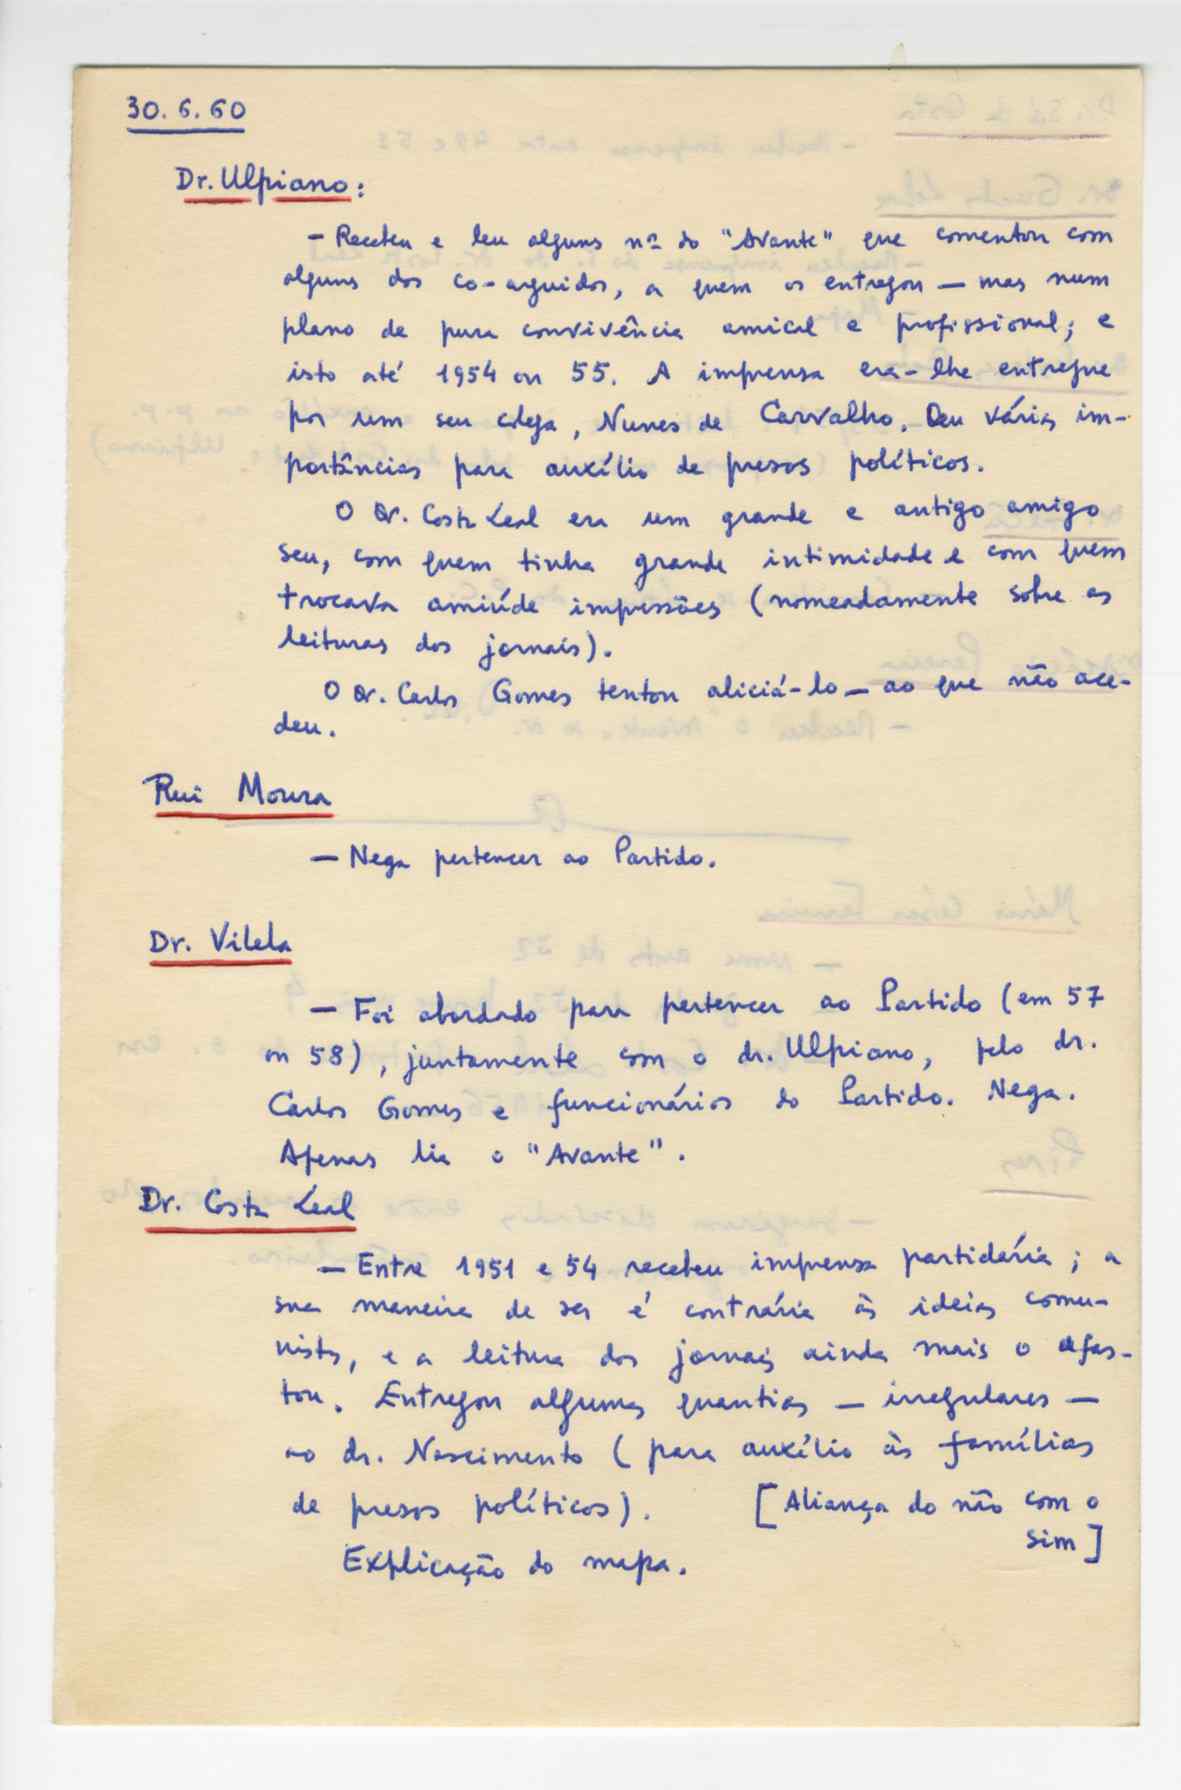 30.6.60
Dr. Ulpiano:
— Recebeu e leu alguns nº do "Avante" que comentou com
alguns dos co-arguidos, a quem os entregou — mas num
plano de pura convivência amical e profissional; e
isto até 1954 ou 55. A imprensa era-lhe entregue
por um seu colega, Nunes de Carvalho. Deu várias im-
portâncias para auxílio de presos políticos.
O Dr. Costa Leal era um grande e antigo amigo
seu, com quem tinha grande intimidade e com quem
trocava amiúde impressões (nomeadamente sobre as
leituras dos jornais).
O Dr. Carlos Gomes tentou aliciá-lo — ao que não ace-
deu.
Rui Moura
— Nega pertencer ao Partido.
Dr. Vilela
— Foi abordado para pertencer ao Partido (em 57
ou 58), juntamente com o dr. Ulpiano, pelo dr.
Carlos Gomes e funcionários do Partido. Nega.
Apenas lia o "Avante".
Dr. Costa Leal
— Entre 1951 e 54 recebeu imprensa partidária; a
sua maneira de ser é contrária às ideias comu-
nistas, e a leitura dos jornais ainda mais o afas-
tou. Entregou algumas quantias — irregulares —
ao dr. Nascimento (para auxílio às famílias
de presos políticos). [Aliança do não com o
sim]
Explicação do mapa.